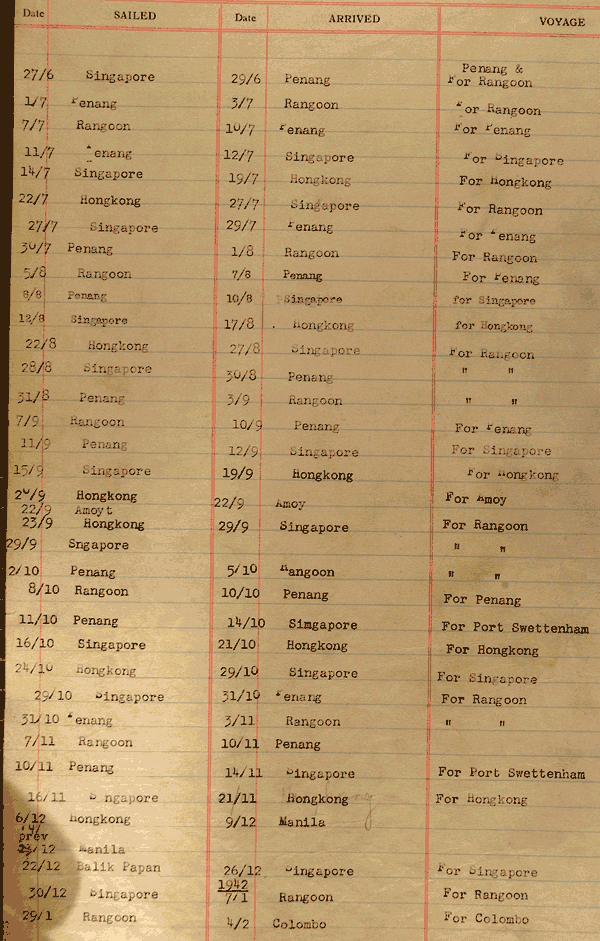 Date SAILED Date ARRIVED VOYAGE
Penang &
27/6 Singapore 29/6 Penang For Rangoon
1/7 Penang 3/7 Rangoon For Rangoon
7/7 Rangoon 10/7 Penang For Penang
11/7 Penang 12/7 Singapore For Singapore
14/7 Singapore 19/7 Hongkong For Hongkong
22/7 Hongkong 27/7 Singapore For Rangoon
27/7 Singapore 29/7 Penang For Penang
30/7 Penang 1/8 Rangoon For Rangoon
5/8 Rangoon 7/8 Penang For Penang
8/8 Penang 10/8 Singapore for Singapore
12/8 Singapore 17/8 . Hongkong for Hongkong
22/8 Hongkong 27/8 Singapore For Rangoon
28/8 Singapore 30/8 Penang " "
31/8 Penang 3/9 Rangoon " "
7/9 Rangoon 10/9 Penang For Penang
11/9 Penang 12/9 Singapore For Singapore
15/9 Singapore 19/9 Hongkong For Hongkong
20/9 Hongkong 22/9 Amoy For Amoy
22/9 Amoyt
23/9 Hongkong 29/9 Singapore For Rangoon
29/9 Sngapore " "
2/10 Penang 5/10 Rangoon " "
8/10 Rangoon 10/10 Penang For Penang
11/10 Penang 14/10 Simgapore For Port Swettenham
16/10 Singapore 21/10 Hongkong For Hongkong
24/10 Hongkong 29/10 Singapore For Singapore
29/10 Singapore 31/10 Penang For Rangoon
31/10 Penang 3/11 Rangoon " "
7/11 Rangoon 10/11 Penang
10/11 Penang 14/11 Singapore For Port Swettenham
16/11 S ngapore 21/11 Hongkong For Hongkong
6/12 Hongkong 9/12 Manila
prev
/12 Manila
22/12 Balik Papan 26/12 Singapore For Singapore
1942
30/12 Singapore 7/1 Rangoon For Rangoon
29/1 Rangoon 4/2 Colombo For Colombo